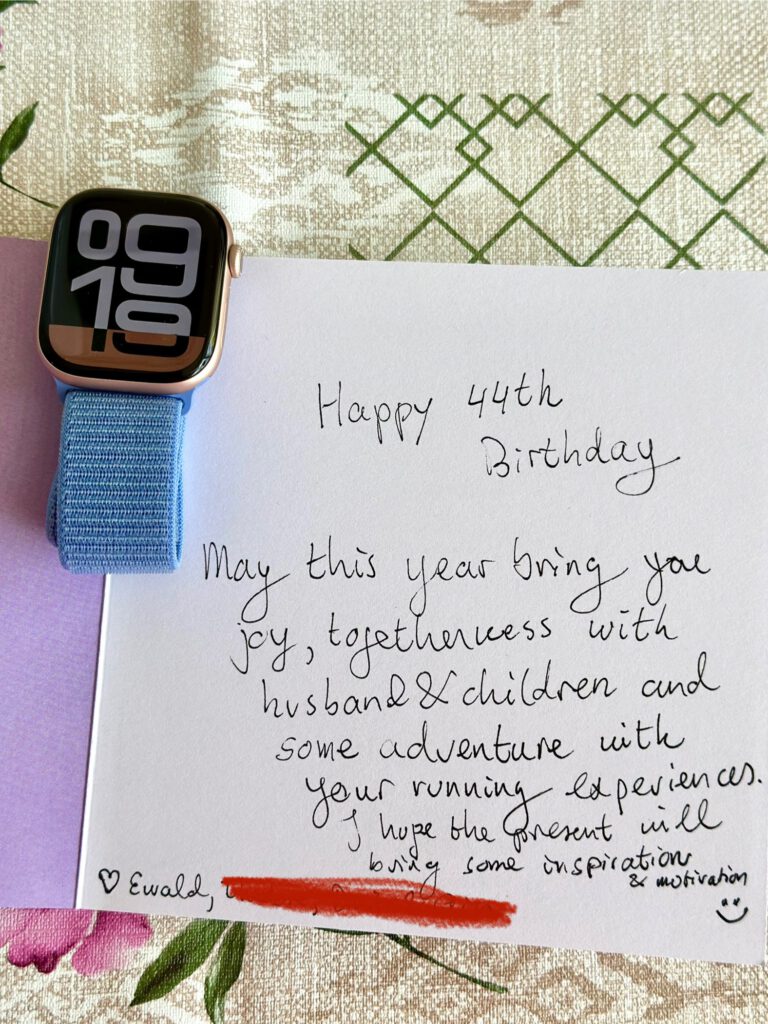 09
18
Happy 44th
Birthday
May this year bring you
joy, togetherness with
husband & children and
some adventure with
your running experiences.
I hope the present will
bring some inspiration
& motivation
♡ Ewald,